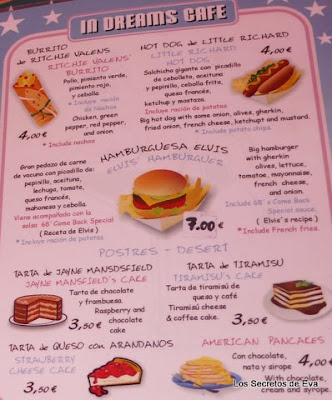 IN DREAMS CAFE
BURRITO
de RITCHIE VALENS
RITCHIE VALENS'
BURRITO
Pollo, pimiento verde,
pimiento rojo,
y cebolla.
* Incluye ración
de Nachos
Chicken, green
pepper, red pepper,
and onion.
4,00 €
* Include nachos
HOT DOG de LITTLE RICHARD
LITTLE RICHARD
HOT DOG
4,00 €
Salchicha gigante con picadillo
de cebolleta, aceituna
y pepinillo, cebolla frita,
queso francés,
ketchup y mostaza.
Incluye ración de patatas
Big hot dog with some onion, olives, gherkin,
fried onion, french cheese, ketchupt and mustard.
* Include potato chips.
HAMBURGUESA ELVIS
ELVIS HAMBURGUER
Gran pedazo de carne
de vacuno con picadillo de:
pepinillo, aceituna,
lechuga, tomate,
queso francés,
mahonesa y cebolla.
Viene acompañado con la
salsa 68' Come Back Special
(Receta de Elvis)
* Incluye ración de patatas
7.00 €
Big hamburguer
with gherkin
olives, lettuce,
tomatoe, mayonnaise,
french cheese,
and onion.
68' Come Back
Special sauce.
( Elvis's recipe )
* Include French fries.
POSTRES - DESERT
TARTA de JAYNE MANSDSFIELD
JAYNE MANSFIELD's CAKE
Tarta de chocolate
y frambuesa.
Raspberry and
chocolate
cake.
3,50 €
TARTA de TIRAMISÚ
TIRAMISU's CAKE
Tarta de tiramisú de
queso y café
Tiramisú cheese
& coffee cake.
3,50 €
TARTA de QUESO con ARANDANOS
STRAWBERRY
CHEESE CAKE
3,50 €
AMERICAN PANCAKES
Con chocolate,
nata y sirope
4,00 €
With chocolate,
cream and syrope.
Los Secretos de Eva